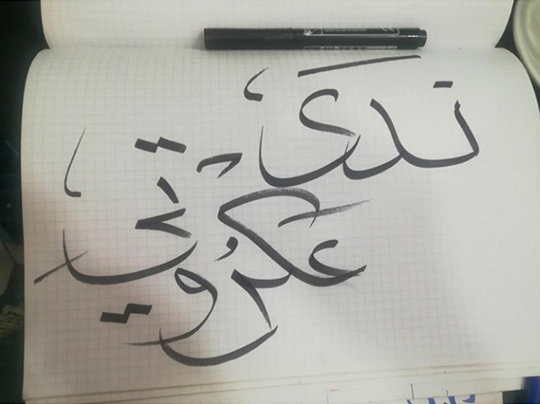 ندى
عكروتي